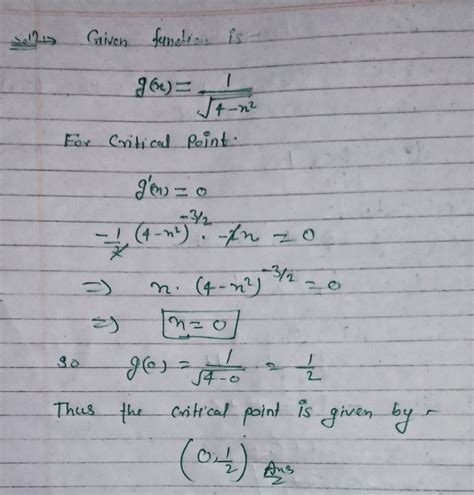 Soln => Given function is -
g(x) = 1/√(4-x²)
For Critical Point.
g'(x) = 0
-1/2 (4-x²)^(-3/2) . -2x = 0
=> x . (4-x²)^(-3/2) = 0
=> x = 0
so g(0) = 1/√(4-0) = 1/2
Thus the critical point is given by -
(0, 1/2) Ans